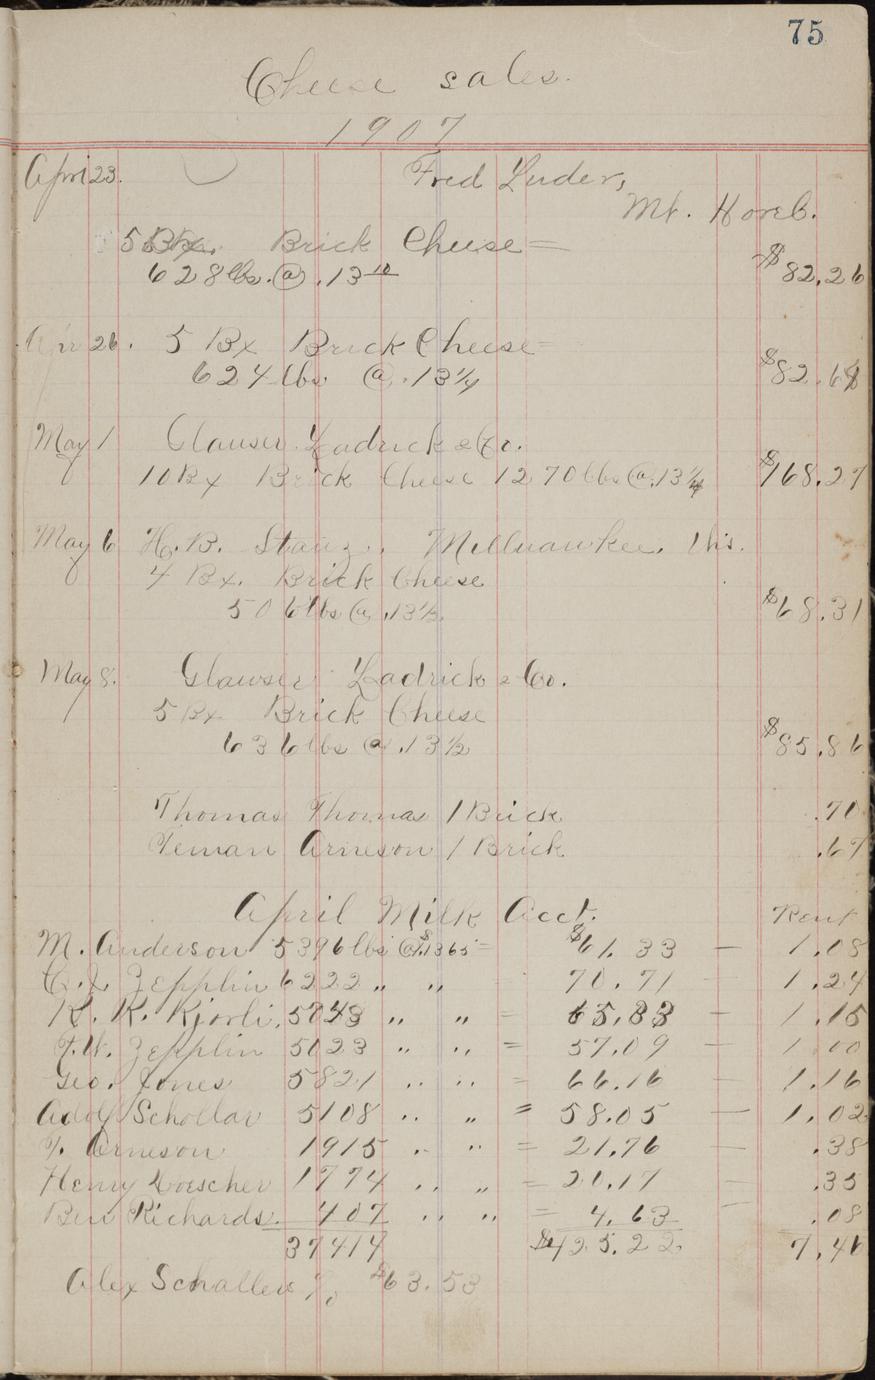 75
Cheese sales.
1907
April 23. Fred Luder,
Mt. Horeb.
5 Bx. Brick Cheese =
628 lbs. @ .13 10 $82.26
Apr 26. 5 Bx Brick Cheese =
624 lbs @ .13 1/4 $82.68
May 1 Clauser Ladrick & Co.
10 Bx Brick Cheese 1270 lbs @ .13 1/4 $168.27
May 6 H. B. Stanz, Milluawkee, Wis.
4 Bx. Brick Cheese
506 lbs @ .13 1/2 $68.31
May 8. Glawser Ladrick & Co.
5 Bx Brick Cheese
636 lbs @ .13 1/2 $85.86
Thomas Thomas 1 Brick .70
Teman Arneson 1 Brick .67
April Milk Acct. Rent
M. Anderson 5396 lbs @ $1.1365 = $61.33 — 1.08
C. J. Zepplin 6222 " " - 70.71 — 1.24
K. K. Kjorli, 5748 " " = 65.33 — 1.15
F. W. Zepplin 5023 " " = 57.09 — 1.00
Geo. Jones 5821 " " = 66.16 — 1.16
Adolf Schollar 5108 " " = 58.05 — 1.02
T. Arneson 1915 " " = 21.76 — .38
Henry Loescher 1774 " " = 20.17 — .35
Ben Richards. 407 " " = 4.63 — .08
37414 $425.22 7.46
Alex Schaller % $63.53